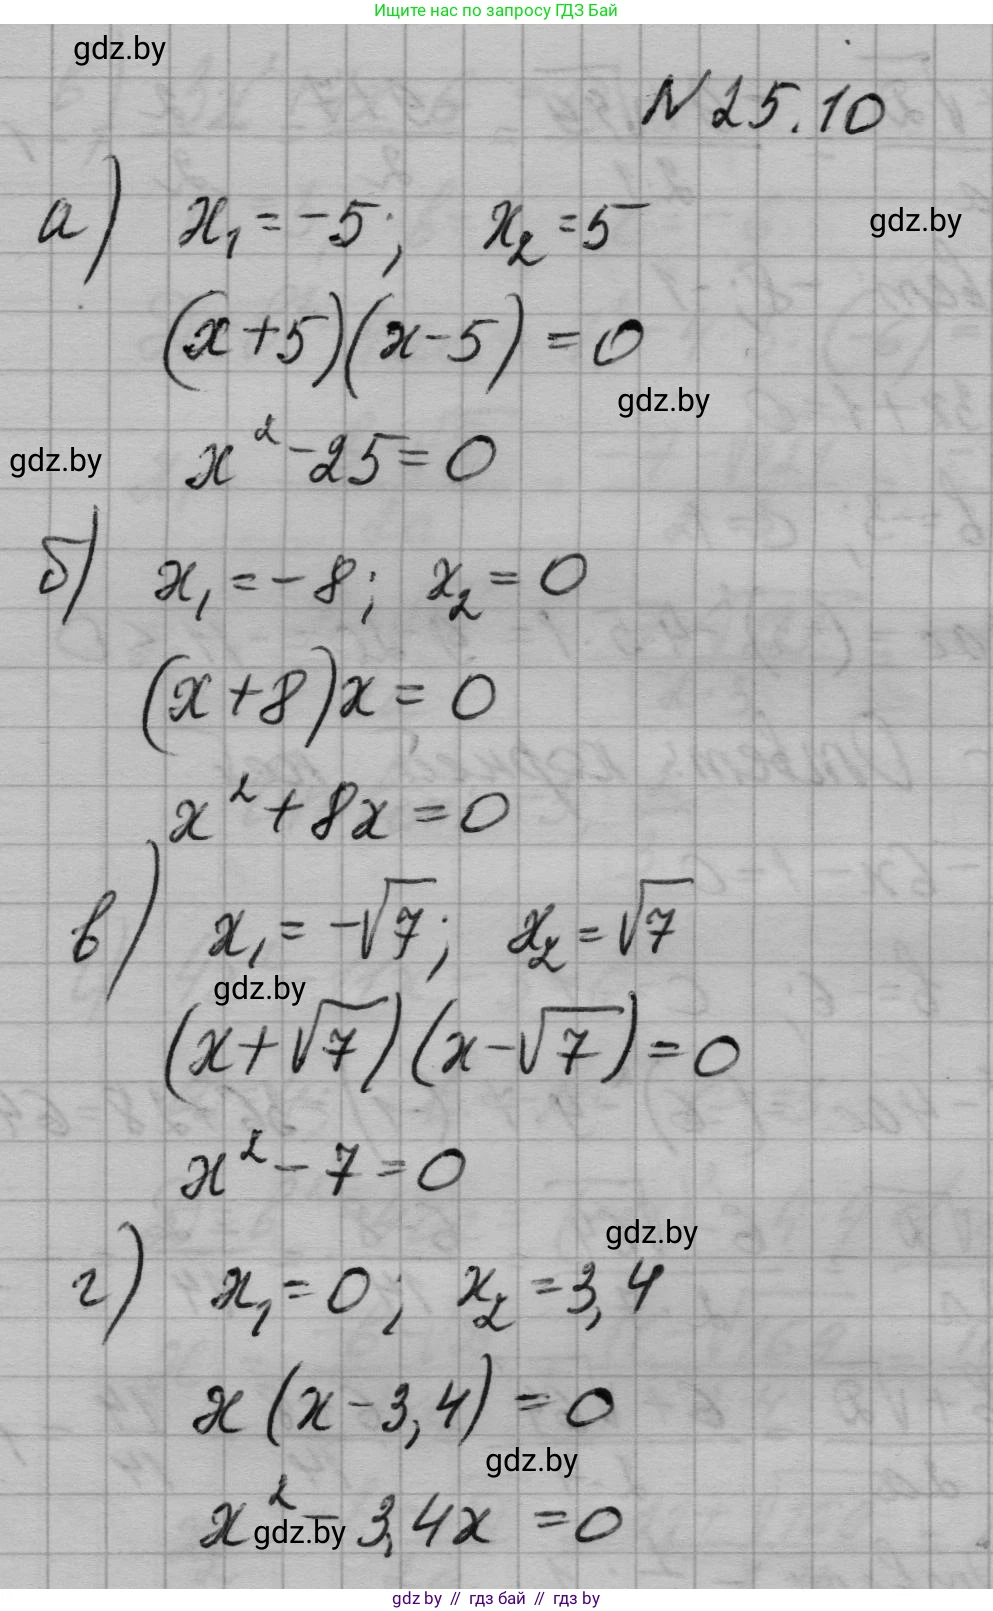 Ищите нас по запросу ГДЗ Бай
gdz.by
N 25.10
а) x₁ = -5; x₂ = 5
gdz.by
(x+5)(x-5) = 0
gdz.by
gdz.by
x² - 25 = 0
б) x₁ = -8; x₂ = 0
(x+8)x = 0
x² + 8x = 0
в) x₁ = -√7; x₂ = √7
gdz.by
(x+√7)(x-√7) = 0
x² - 7 = 0
gdz.by
г) x₁ = 0; x₂ = 3,4
x(x-3,4) = 0
gdz.by
x² - 3,4x = 0
gdz.by
gdz.by // гдз бай // гдз by